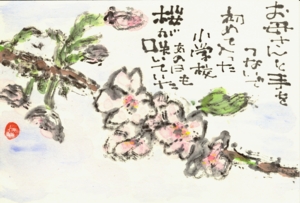 お母さんと手を
つないで
初めて入った
小学校
あの日も
桜が咲いていた